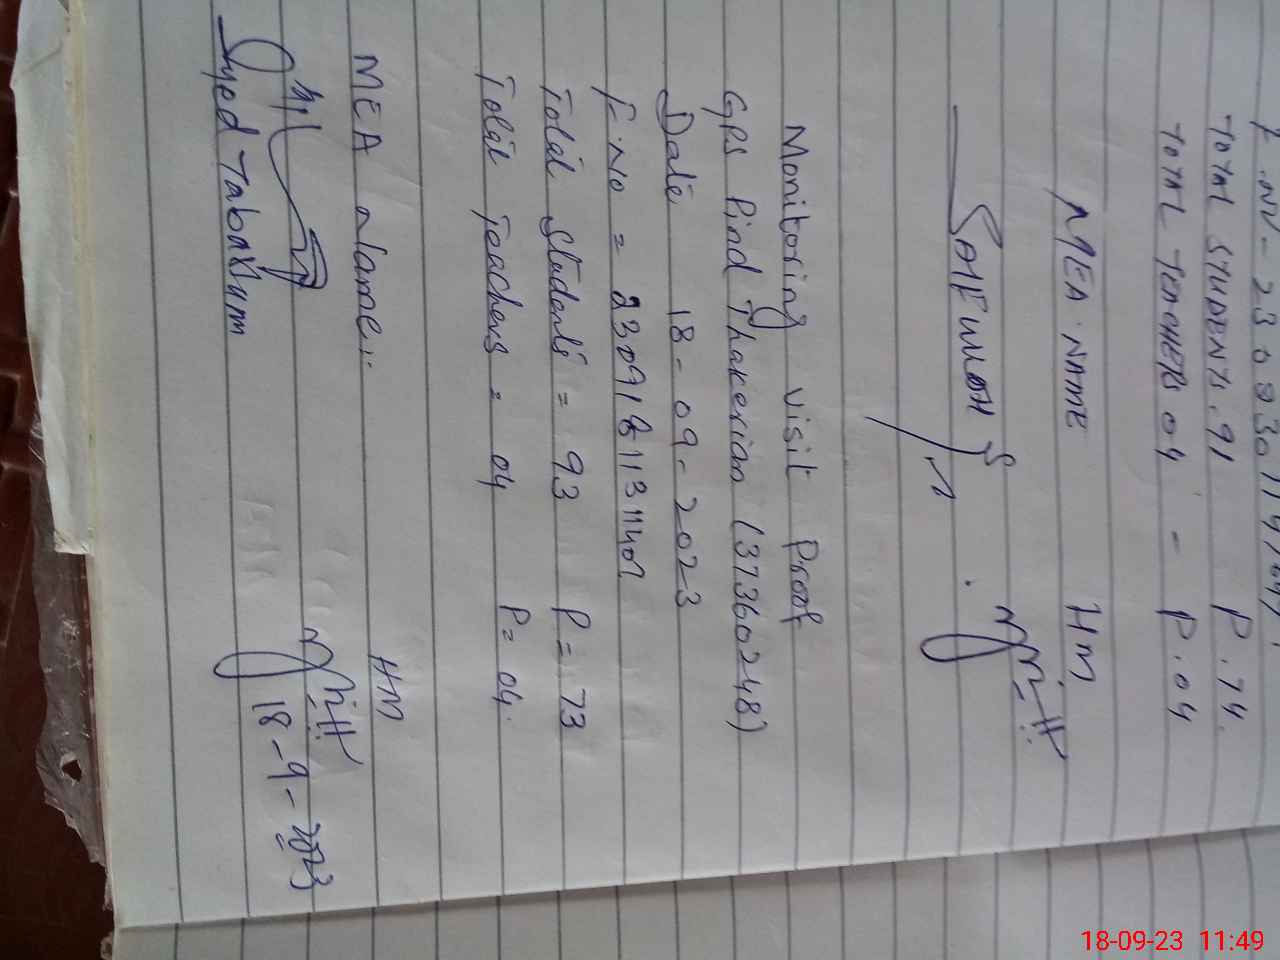 TOTAL STUDENTS. 91 P. 74.
TOTAL TEACHERS 04 - P. 04
MEA NAME HM
Monitoring visit Proof
GPS Pind Thakerian (37360248)
Date 18-09-2023
F.No = 
Total Students = 93 P = 73
Total Teachers = 04 P = 04.
MEA Name:- HM
Syed Tabakhum 18-9-2023
18-09-23 11:49